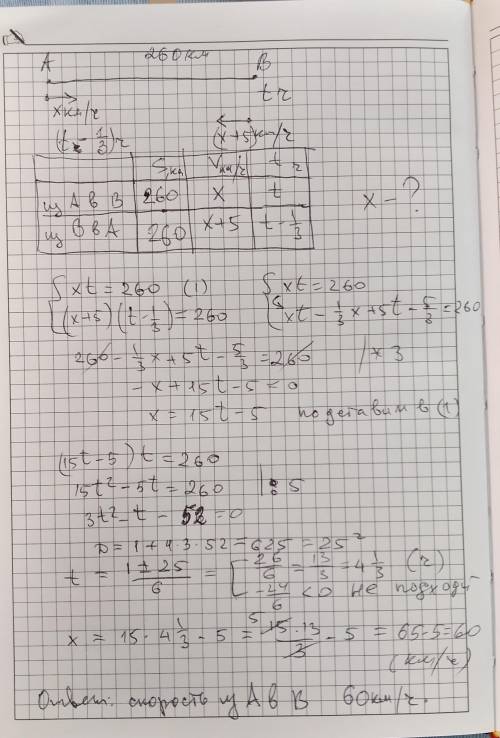 260 км
A B
x км/ч t ч
(t - 1/3) ч (x+5) км/ч
S, км V км/ч t ч
из A в B 260 x t
из B в A 260 x+5 t - 1/3
x - ?
{ xt = 260 (1) { xt = 260
(x+5)(t - 1/3) = 260 xt - 1/3 x + 5t - 5/3 = 260
260 - 1/3 x + 5t - 5/3 = 260 | * 3
- x + 15t - 5 = 0
x = 15t - 5 подставим в (1)
(15t - 5) t = 260
15t² - 5t = 260 | : 5
3t² - t - 52 = 0
D = 1 + 4·3·52 = 625 = 25²
t = (1 ± 25)/6 = [ 26/6 = 13/3 = 4 1/3 (ч)
-24/6 < 0 не подходит
x = 15 · 4 1/3 - 5 = 15·13/3 - 5 = 65-5=60
(км/ч)
Ответ: скорость из A в B 60 км/ч.